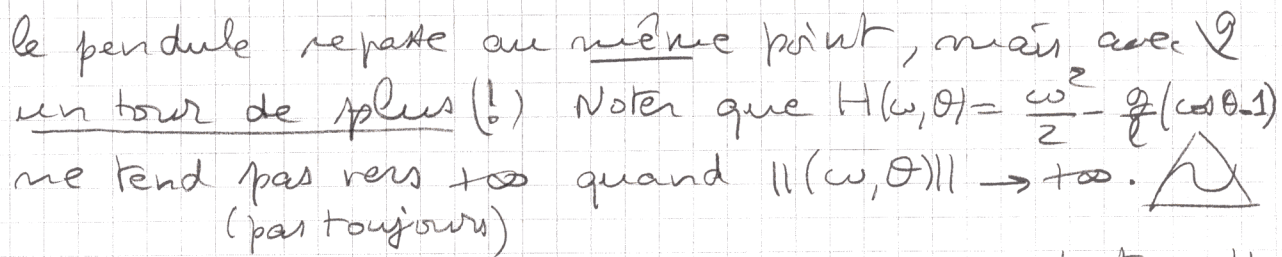 le pendule repasse au même point, mais avec
un tour de plus (!) Noter que H(ω,θ) = ω²/2 - g/l (cos θ-1)
ne tend pas vers +∞ quand ||(ω,θ)|| → +∞.
(pas toujours)